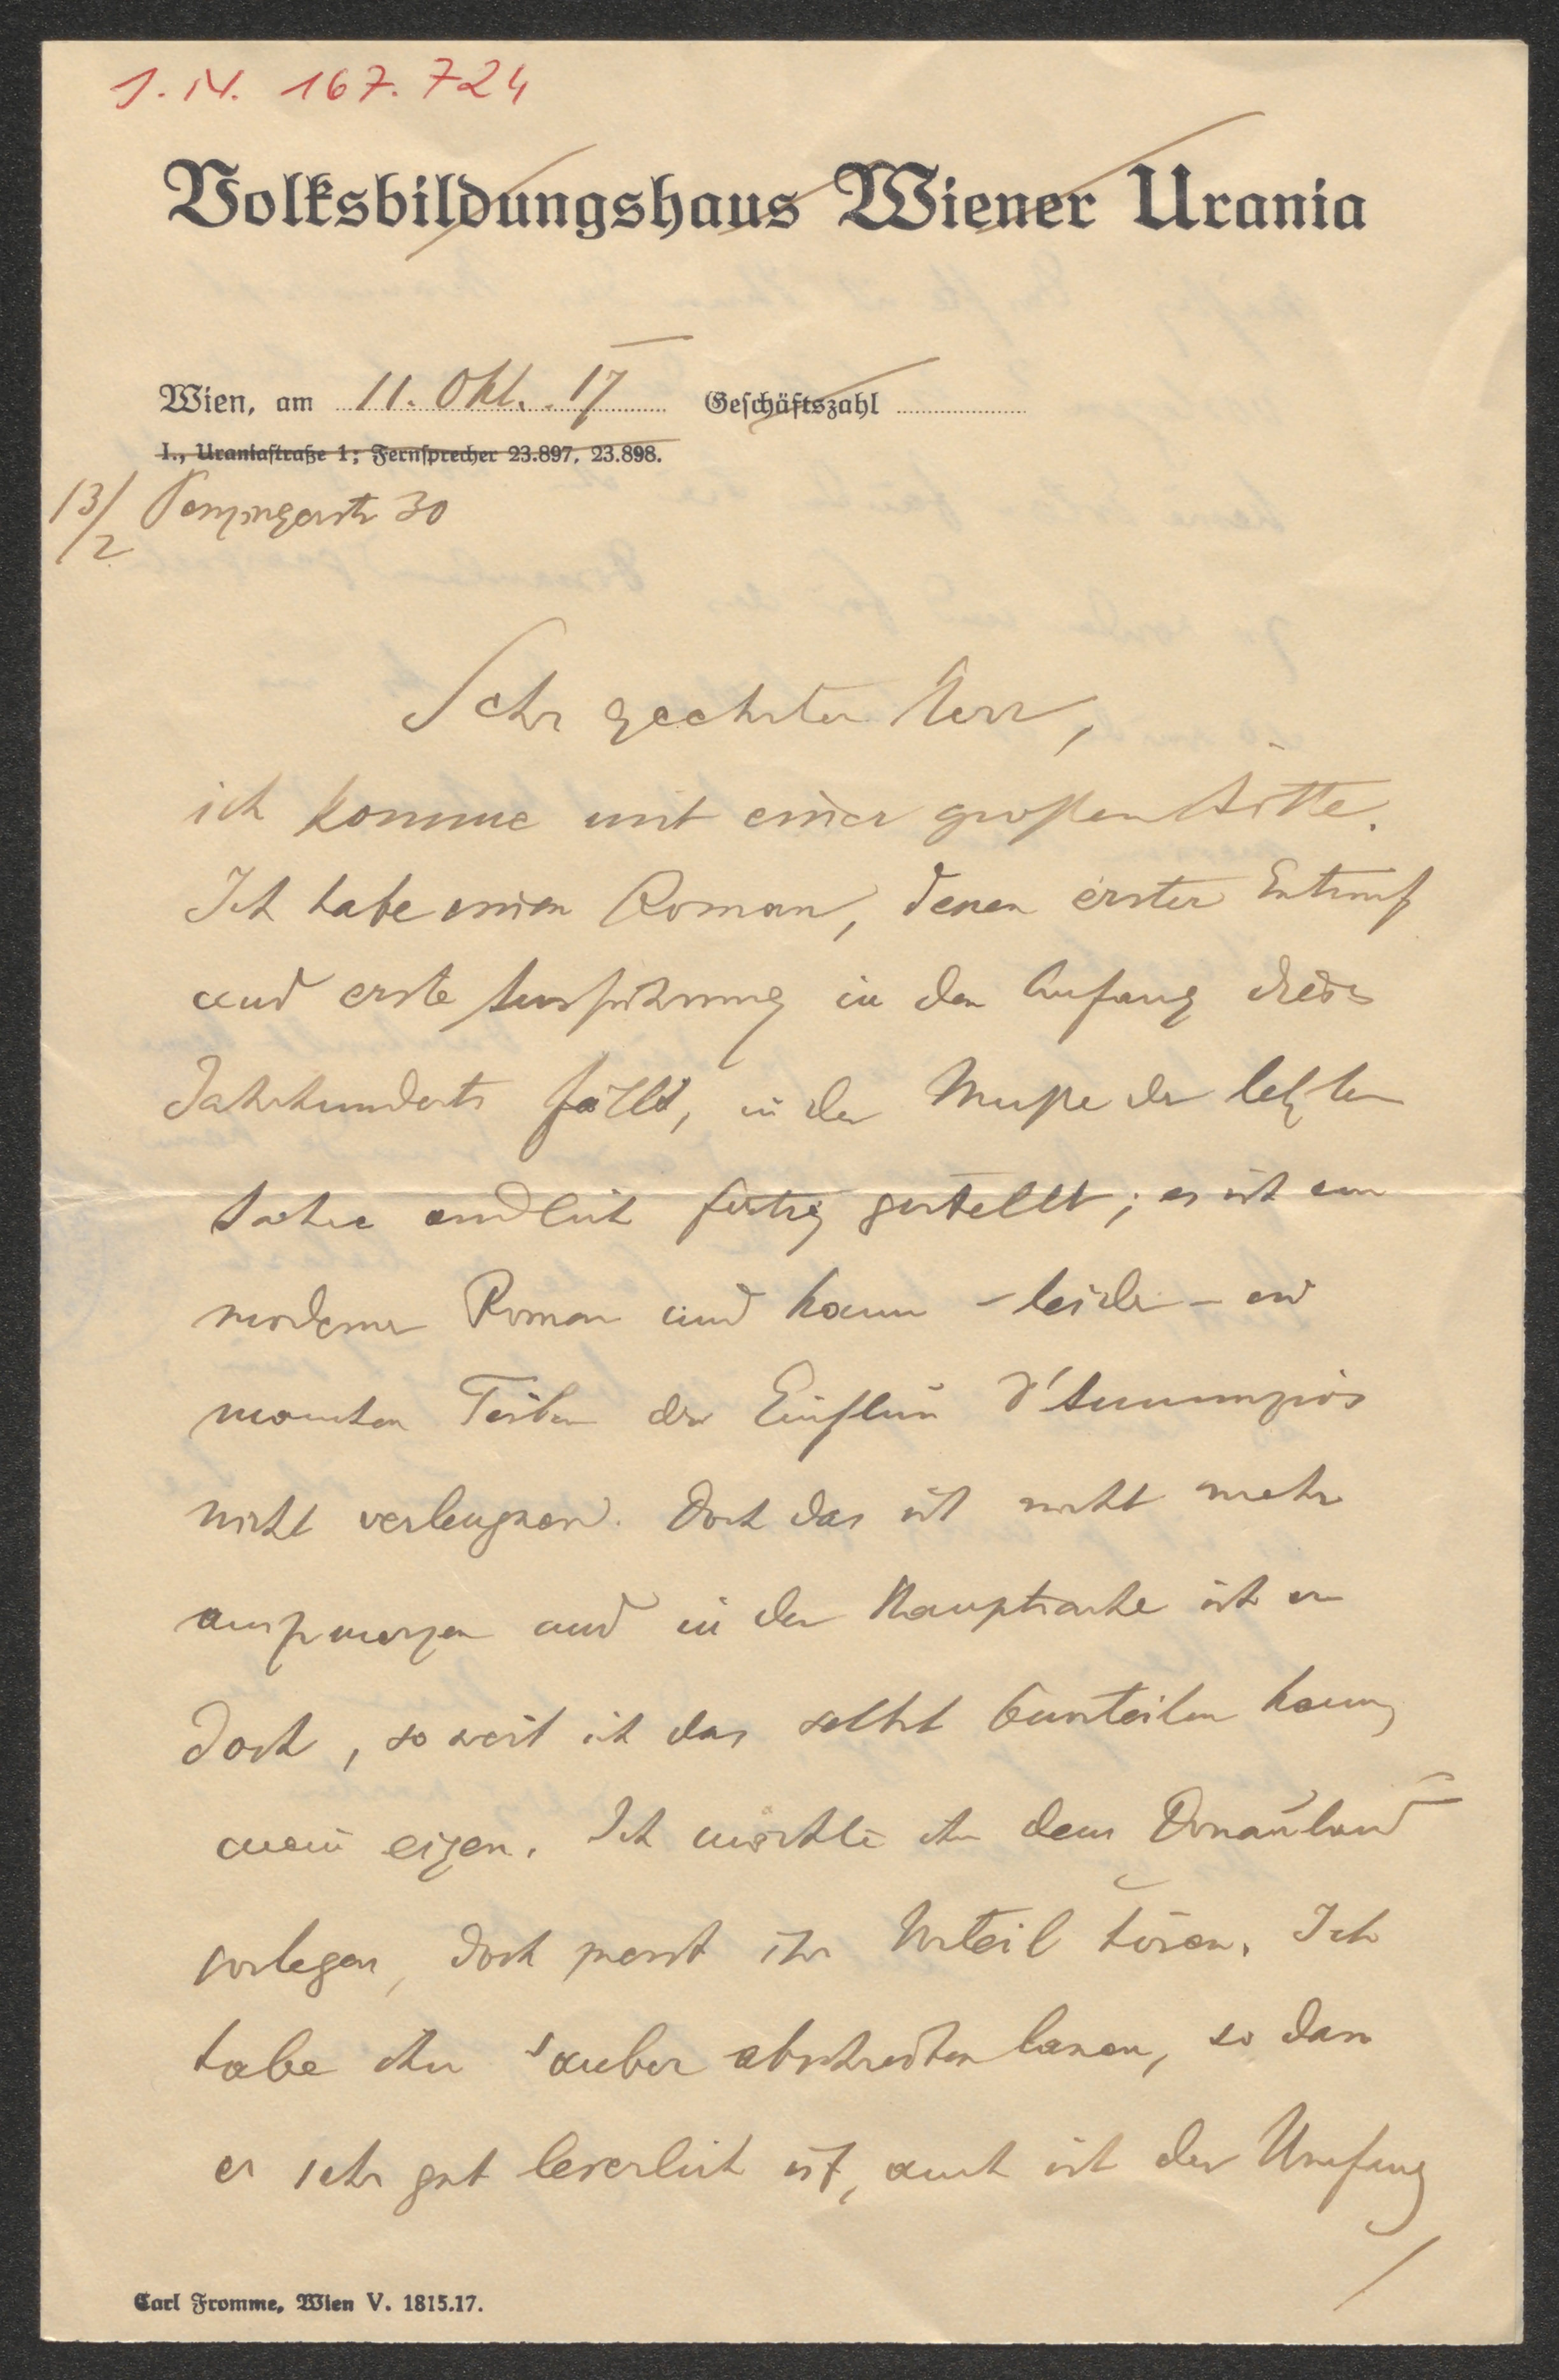 I. N. 167.724
Volksbildungshaus Wiener Urania
Wien, am 11. Okt. 17 Geschäftszahl
I., Uraniastraße 1; Fernsprecher 23.897, 23.898.
13/2 Penzingerstr 30
Sehr geehrter Herr,
ich komme mit einer großen Bitte.
Ich habe einen Roman, dessen erster Entwurf
und erste Ausführung in den Anfang dieses
Jahrhunderts fällt, in der Muße der letzten
Jahre endlich fertig gestellt; es ist ein
moderner Roman und kann – leider – in
manchen Teilen den Einfluss d'Annunzios
nicht verleugnen. Doch das ist nicht mehr
auszumerzen und in der Hauptsache ist er
doch, so weit ich das selbst beurteilen kann,
mein eigen. Ich möchte ihn dem Donauland
vorlegen, doch zuerst ihr Urteil hören. Ich
habe ihn sauber abschreiben lassen, so dass
er sehr gut leserlich ist, auch ist der Umfang
/
Carl Fromme, Wien V. 1815.17.